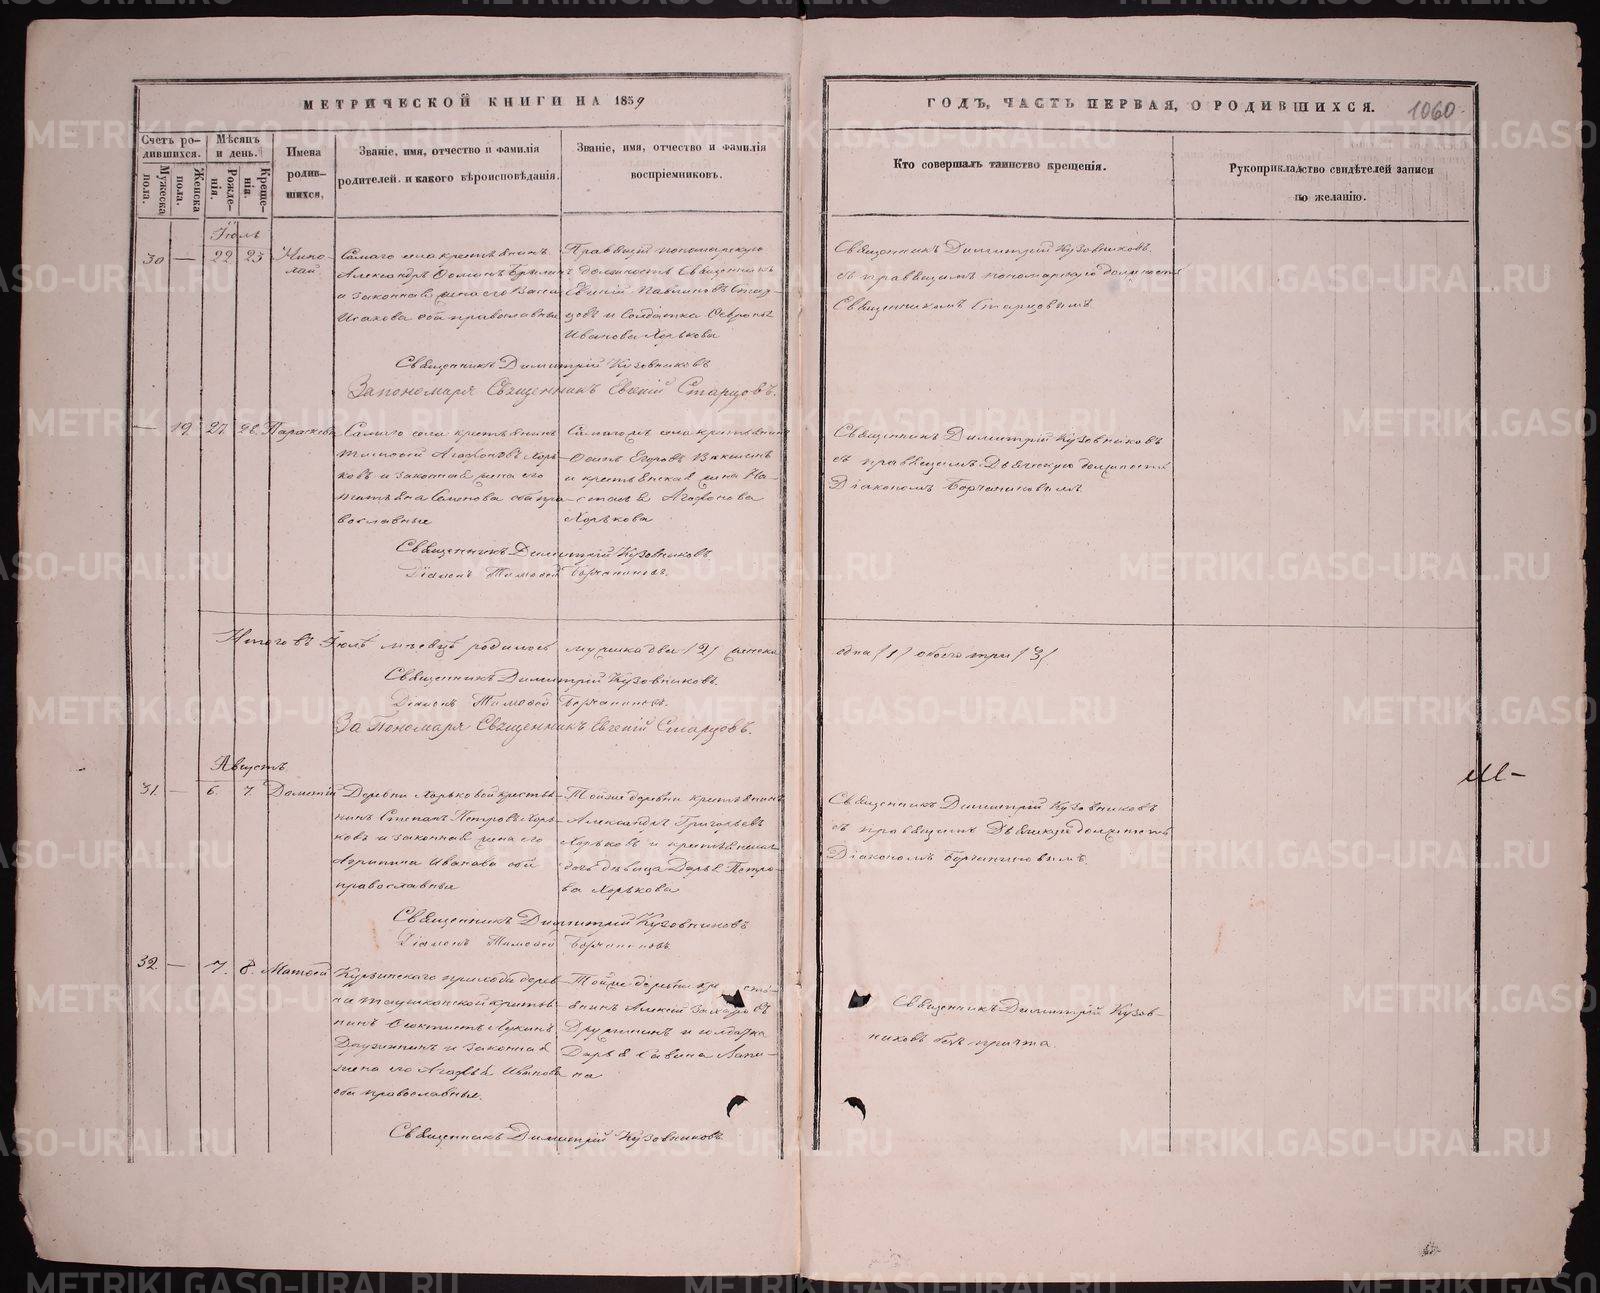 МЕТРИЧЕСКОЙ КНИГИ НА 1859
ГОДЪ, ЧАСТЬ ПЕРВАЯ, О РОДИВШИХСЯ.
1060
Счетъ ро-
дившихся.
Мужеска
пола.
Женска
пола.
Мѣсяцъ
и день.
Рожде-
нія.
Креще-
нія.
Имена
родив-
шихся,
Званіе, имя, отчество и фамилія
родителей. и какого вѣроисповѣданія.
Званіе, имя, отчество и фамилія
воспріемниковъ.
Кто совершалъ таинство крещенія.
Рукоприкладство свидѣтелей записи
по желанію.
Іюль
30 — 22 23 Нико-
лай
Самаго села крестьянинъ
Александръ Ѳоминъ
и законная жена его
Исакова оба православные
Правящій пономарскую
должность Священникъ
Евгеній Павлиновъ Стар-
цовъ и Солдатка
Иванова Хорькова
Священникъ Димитрій Кузовниковъ
съ правящимъ пономарскую должность
Священникомъ Старцовымъ
Священникъ Димитрій Кузовниковъ
За пономаря Священникъ Евгеній Старцовъ.
— 19 27 28 Параскева
Самаго села крестьянинъ
Тимофей Агафоновъ Хорь-
ковъ и законная жена его
Татьяна Семенова оба пра-
вославные
Самагожъ села крестьянинъ
Осипъ Егоровъ
и крестьянская жена На-
стасья Агафонова
Хорькова
Священникъ Димитрій Кузовниковъ
съ правящимъ Дьяческую должность
Діакономъ
Священникъ Димитрій Кузовниковъ
Діаконъ Тимофей
Итого въ Іюлѣ мѣсяцѣ родилось мужска два (2) женска
одна (1) обоего три (3)
Священникъ Димитрій Кузовниковъ.
Діаконъ Тимофей
За Пономаря Священникъ Евгеній Старцовъ.
Августъ
31. — 6. 7. Дометій
Деревни Хорьковой крестья-
нинъ Степанъ Петровъ Хорь-
ковъ и законная жена его
Агрипина Иванова оба
православные
Тойже деревни крестьянинъ
Александръ Григорьевъ
Хорьковъ и крестьянская
дочь дѣвица Дарья Петро-
ва Хорькова
Священникъ Димитрій Кузовниковъ
съ правящимъ Дьяческую должность
Діакономъ
Священникъ Димитрій Кузовниковъ
Діаконъ Тимофей
32. — 7. 8. Матвей
прихода дерев-
ни крестья-
нинъ Ѳеоктистъ Лукинъ
Дружининъ и законная
жена его Агафья Иванова
оба православные.
Тойже деревни кресть-
янинъ Алексей Захаровъ
Дружининъ и солдатка
Дарья Савина Лапи-
на
Священникъ Димитрій Кузов-
никовъ безъ причта.
Священникъ Димитрій Кузовниковъ
METRIKI.GASO-URAL.RU